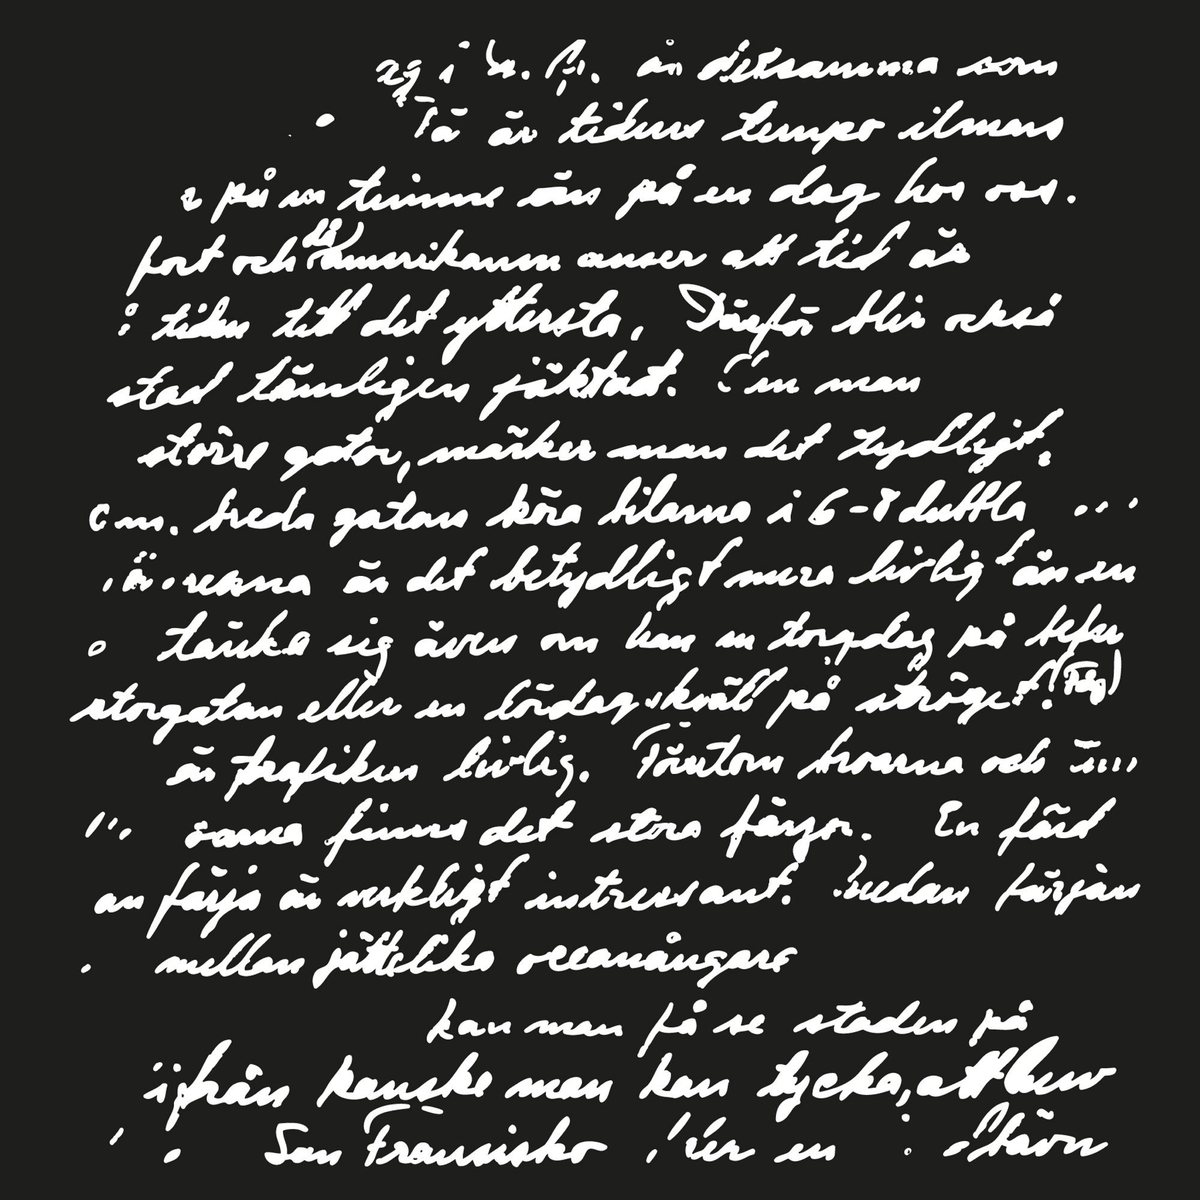 i är detsamma som
Tå är tidens tempo
på en timme än på en dag hos oss.
fort och då amerikanen anser att tid är
i tiden till det yttersta. Därför blir också
stad tämligen jäktad. man
större gator, märker man det tydligt.
m. breda gatan köra bilarna i 6-8 dubbla
är det betydligt mera livlig än en
tänka sig även om han en torgdag på
storgatan eller en lördagskväll på ströget.
är trafiken livlig. Förutom broarna och
finns det stora färjor. En färd
an färja är verkligt intressant. färjan
mellan jättelika oceanångare
kan man få se staden på
ifrån kanske man kan tycka, att
San Fransisko en